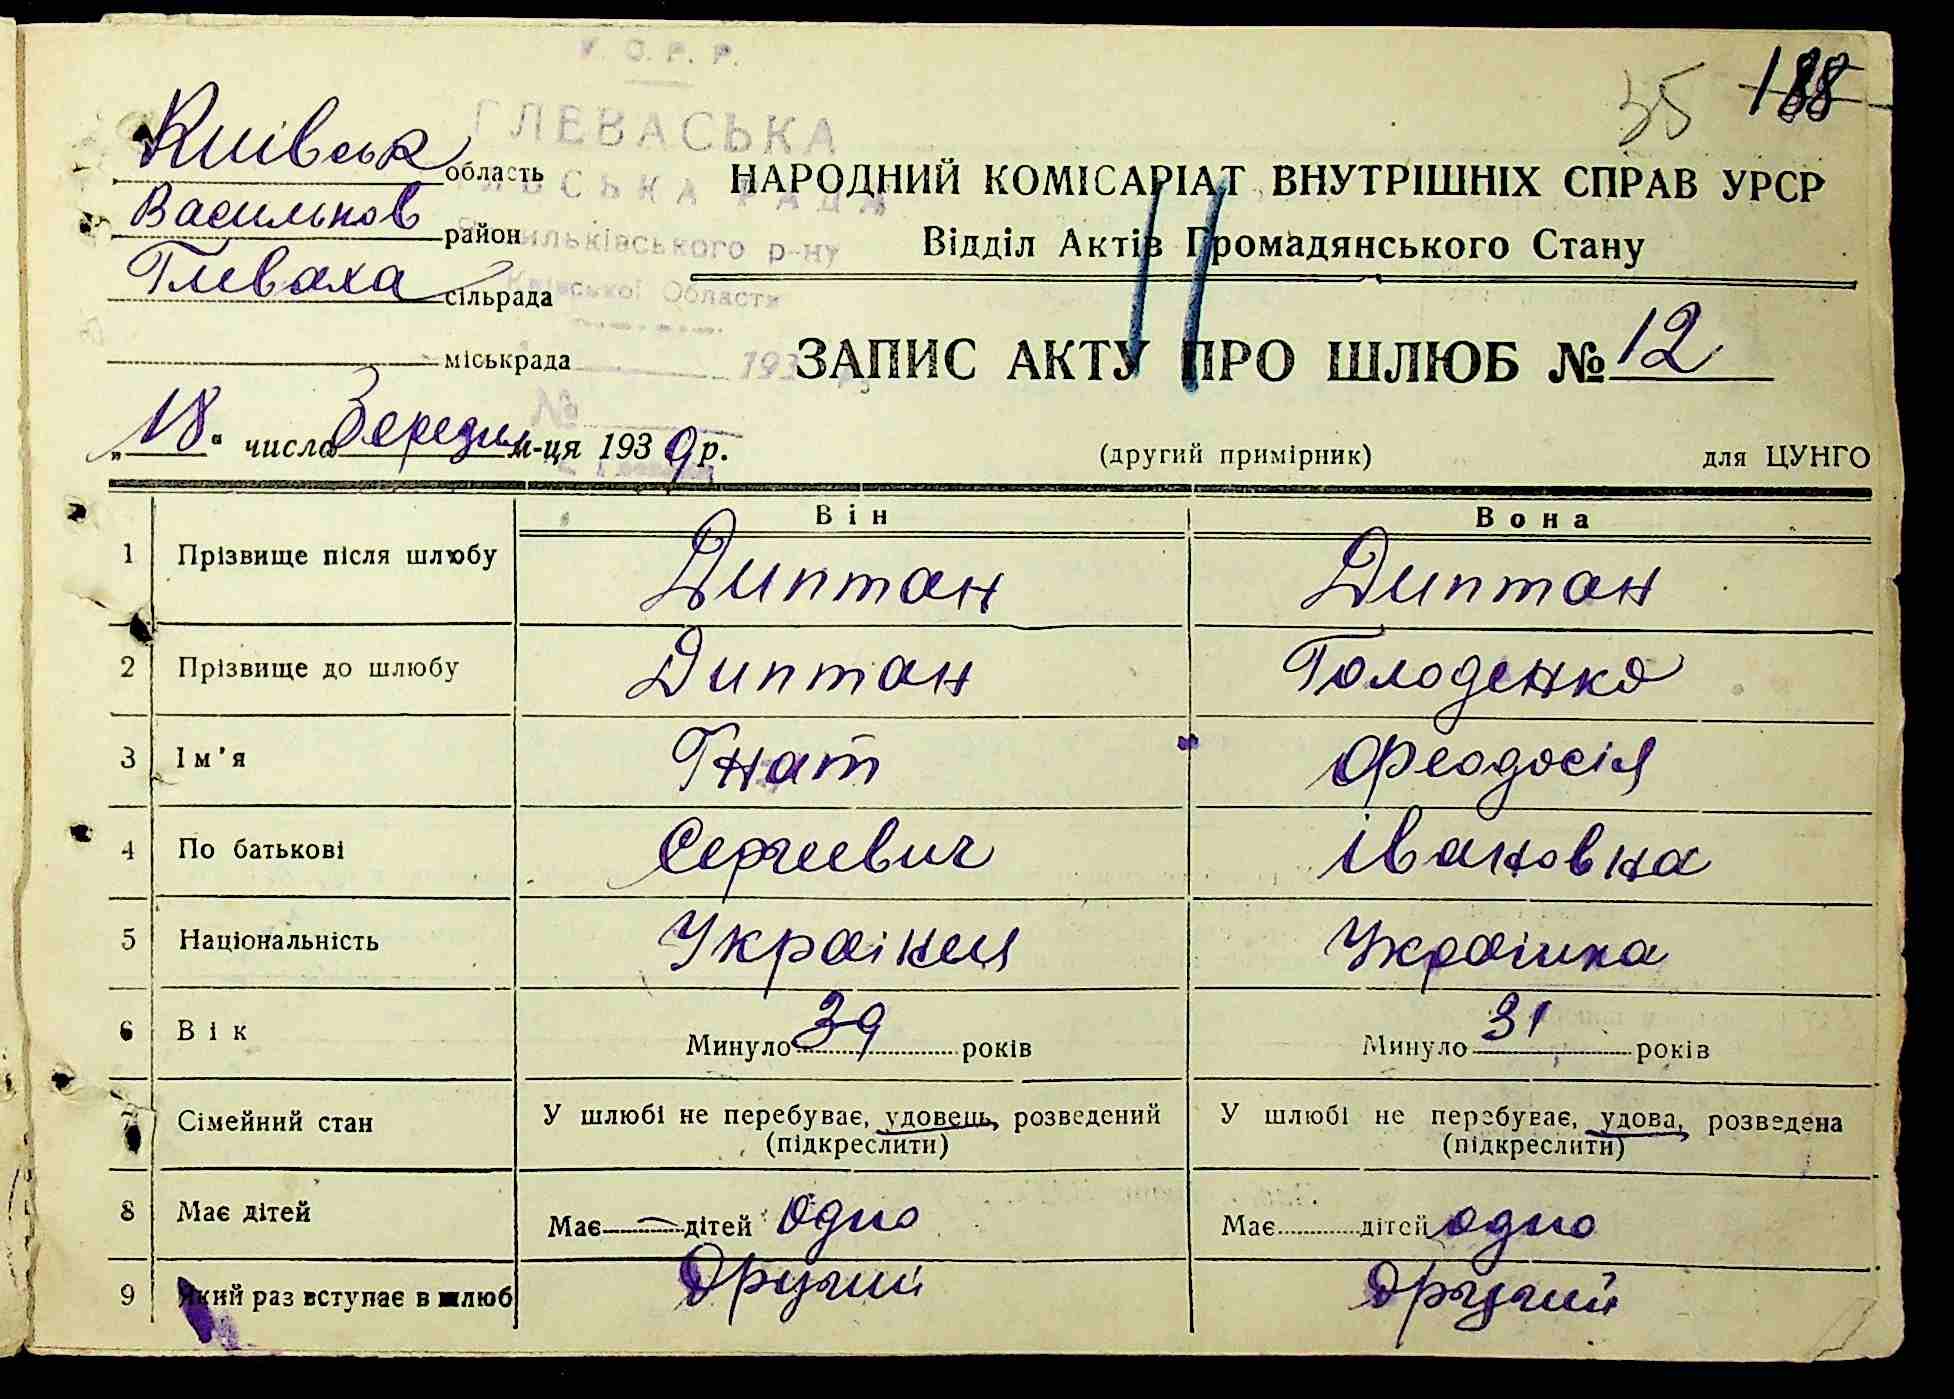 У. С. Р. Р.
ГЛЕВАСЬКА
РАДА
Васильківського р-ну
Київської Области
193
№
35 188
Київськ область
Васильков район
Глеваха сільрада
міськрада
„18“ число Середня м-ця 1939 р.
НАРОДНИЙ КОМІСАРІАТ ВНУТРІШНІХ СПРАВ УРСР
Відділ Актів Громадянського Стану
ЗАПИС АКТУ ПРО ШЛЮБ № 12
(другий примірник) для ЦУНГО
Він Вона
1 Прізвище після шлюбу Диптан Диптан
2 Прізвище до шлюбу Диптан Голоденко
3 Ім'я Гнат Феодосія
4 По батькові Сергеевич Івановна
5 Національність Українця Українка
6 Вік Минуло 39 років Минуло 31 років
7 Сімейний стан У шлюбі не перебуває, удовець, розведений У шлюбі не перебуває, удова, розведена
(підкреслити) (підкреслити)
8 Має дітей Має — дітей одно Має дітей одно
9 Який раз вступає в шлюб Другий Другий